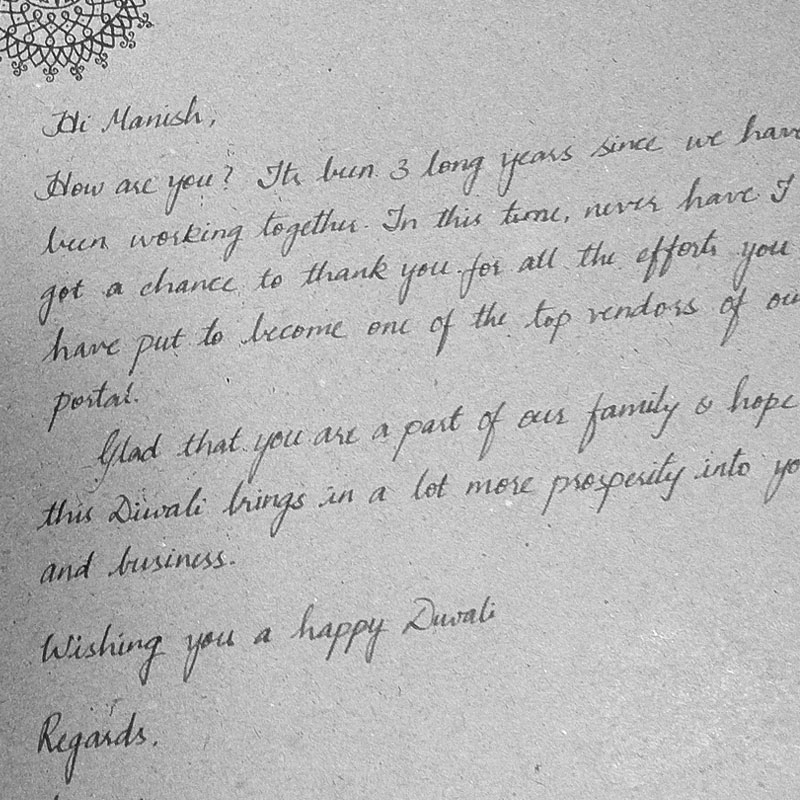 Hi Manish,
How are you? Its been 3 long years since we have
been working together. In this time, never have I
got a chance to thank you for all the efforts you
have put to become one of the top vendors of ou
portal.
Glad that you are a part of our family & hope
this Diwali brings in a lot more prosperity into yo
and business.
Wishing you a happy Diwali
Regards,